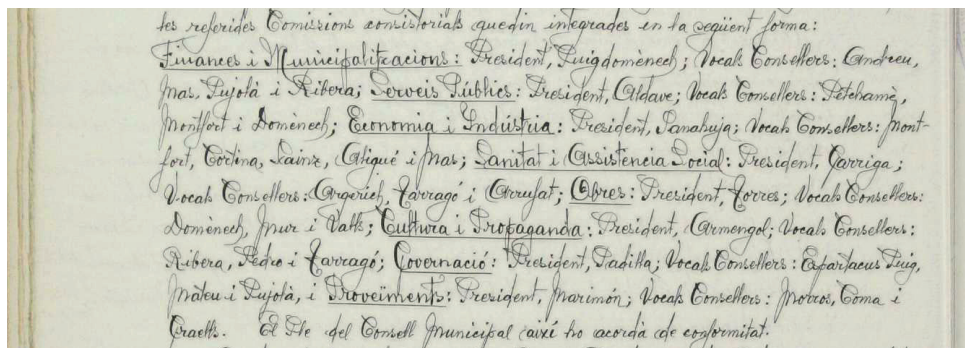 tes referides Comissions consistorials quedin integrades en la següent forma:
Finances i Municipalitzacions: President, Puigdomènech; Vocals Consellers: Andreu,
Mas, Pujolà i Ribera; Serveis Públics: President, Aldave; Vocals Consellers: Petchamé,
Montfort i Domènech; Economia i Indústria: President, Panahuja; Vocals Consellers: Mont-
fort, Cortina, Sainz, Atigué i Mas; Sanitat i Assistència Social: President, Garriga;
Vocals Consellers: Argerich, Tarragó i Arrufat; Obres: President, Torres; Vocals Consellers:
Domènech, Mur i Valls; Cultura i Propaganda: President, Armengol; Vocals Consellers:
Ribera, Pedro i Tarragó; Governació: President, Padilla; Vocals Consellers: Espartacus Puig,
Mateu i Pujolà, i Proveïments: President, Marimón; Vocals Consellers: Morros, Coma i
Graells. El Ple del Consell Municipal així ho acordà de conformitat.